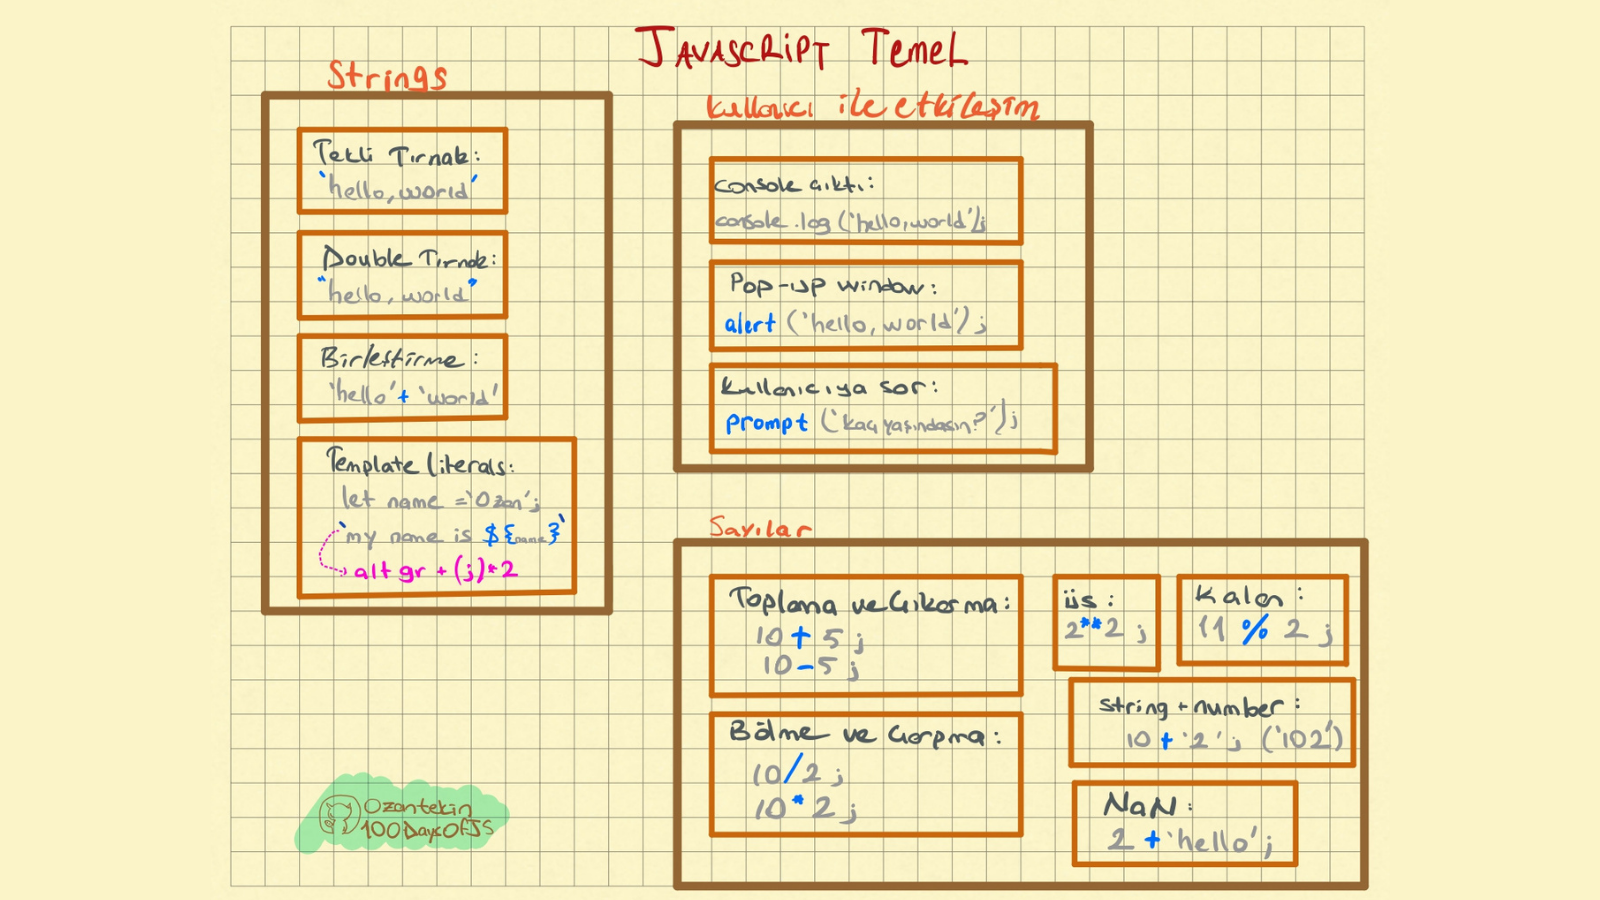 JAVASCRİPT TEMEL
Strings
Tekli Tırnak:
'hello, world'
Double Tırnak:
"hello, world"
Birleştirme:
'hello' + 'world'
Template literals:
let name = 'Ozan';
`my name is ${name}`
alt gr + (;)*2
kullanıcı ile etkileşim
console çıktı:
console.log('hello,world');
Pop-up window:
alert('hello, world');
kullanıcıya sor:
prompt('kaç yaşındasın?');
Sayılar
Toplama ve Çıkarma:
10 + 5;
10 - 5;
Bölme ve Çarpma:
10/2;
10 * 2;
üs:
2**2;
Kalan:
11 % 2;
string + number:
10 + '2'; ('102')
NaN:
2 + 'hello';
Ozantekin
100DaysOfJS